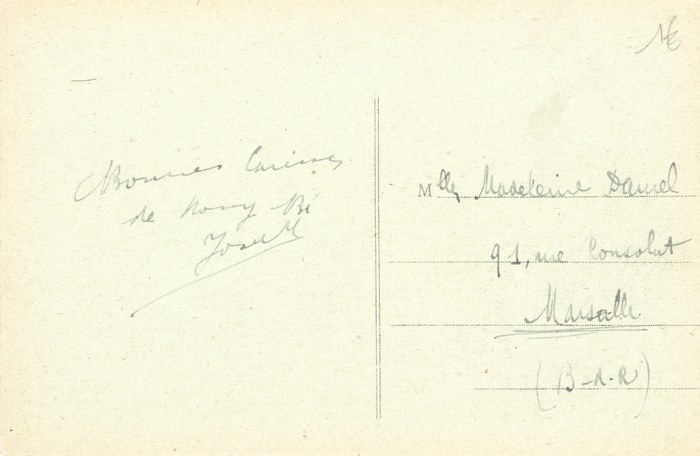 Bonnes Caresses
de Nossy Bé
Joseph
Mlle Madeleine Daniel
91, rue Consolat
Marseille
(B-d-R)